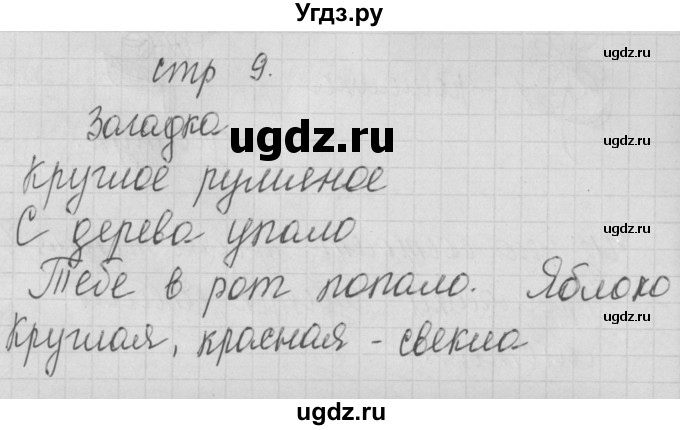 Угдз.ру
ugdz.ru
стр 9.
Загадка
ugdz.ru
Круглое румяное
ugdz.ru
С дерева упало
ugdz.ru
Тебе в рот попало. Яблоко
ugdz.ru
Круглая, красная - свекла
ugdz.ru
ugdz.ru